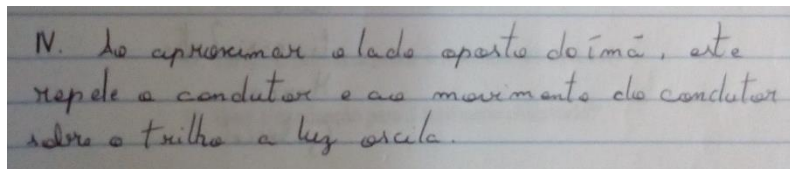 IV. Ao aproximar o lado oposto do ímã, este
repele o condutor e ao movimento do condutor
sobre o trilho a luz oscila.